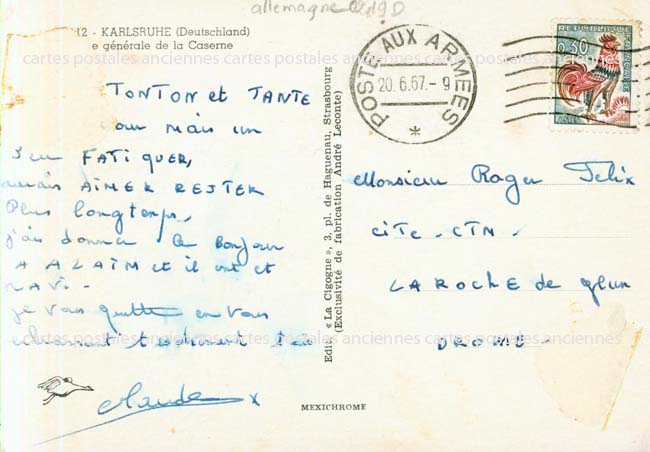 allemagne
12 - KARLSRUHE (Deutschland)
e générale de la Caserne
cartes postales anciennes cartes postales anciennes cartes postales anciennes
TONTON et TANTE
ou mais un
FATIQUER,
AIMER RESTER
Plus longtemps,
j'ai donner le bonjour
A ALAIM et il ont et
RAVI-
je vais quitte en vous
Claude x
Edit. « La Cigogne », 3, pl. de Haguenau, Strasbourg
(Exclusivité de fabrication André Leconte)
MEXICHROME
POSTE AUX ARMEES
20.6.67.-9
*
REPUBLIQUE
FRANÇAISE
0,30
POSTES
Monsieur Roger Felix
CITE-CTN-
LA ROCHE de glun
DROME-
cartes postales anciennes cartes postales anciennes cartes postales anciennes